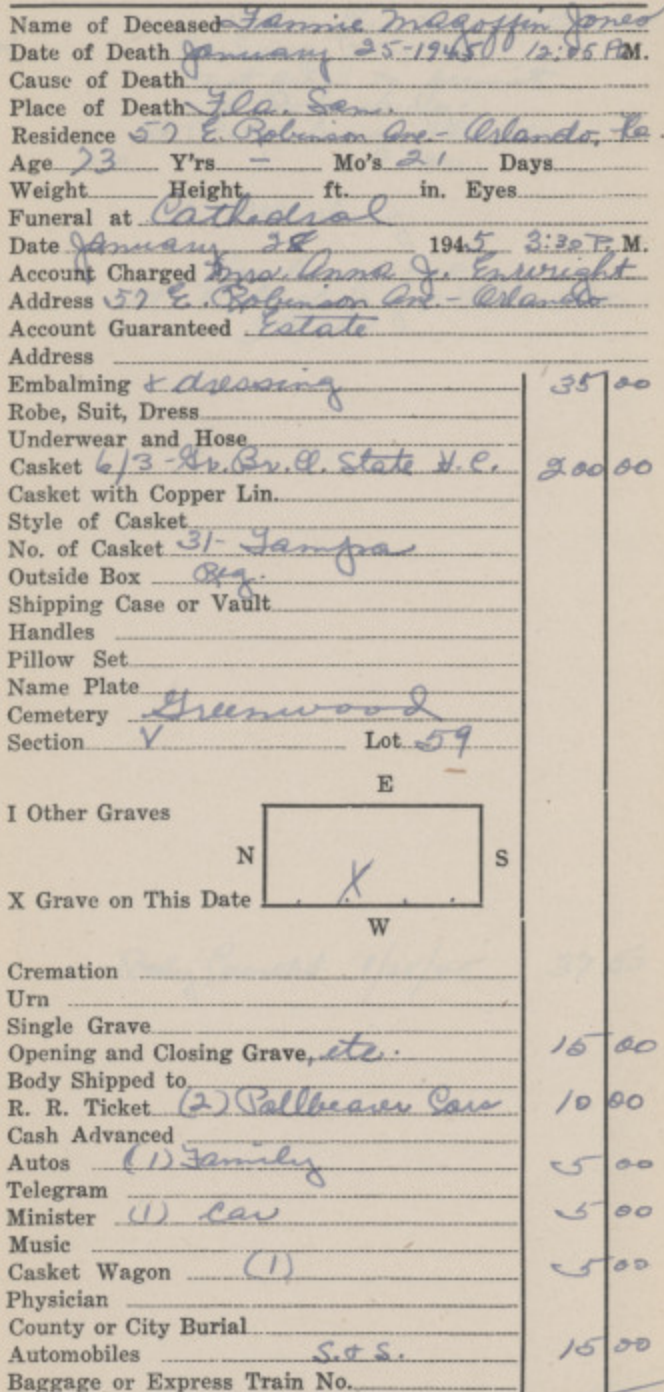 Name of Deceased Fannie Magoffin Jones
Date of Death January 25-1945 12:05 P.M.
Cause of Death
Place of Death Fla. San.
Residence 57 E. Robinson Ave.- Orlando,
Age 73 Y'rs - Mo's 21 Days
Weight Height ft. in. Eyes
Funeral at Cathedral
Date January 1945 3:30 P. M.
Account Charged Mrs. Anna J. Enwright
Address 57 E. Robinson Ave.- Orlando
Account Guaranteed Estate
Address
Embalming & dressing 35 00
Robe, Suit, Dress
Underwear and Hose
Casket 6/3 - Br. State 200 00
Casket with Copper Lin.
Style of Casket
No. of Casket 31- Tampa
Outside Box Reg.
Shipping Case or Vault
Handles
Pillow Set
Name Plate
Cemetery Greenwood
Section V Lot 59
E
I Other Graves
N S
X
X Grave on This Date
W
Cremation
Urn
Single Grave
Opening and Closing Grave, etc. 15 00
Body Shipped to
R. R. Ticket (2) Pallbearer Cars 10 00
Cash Advanced
Autos (1) Family 5 00
Telegram
Minister (1) Car 5 00
Music
Casket Wagon (1) 5 00
Physician
County or City Burial
Automobiles S. & S. 15 00
Baggage or Express Train No.